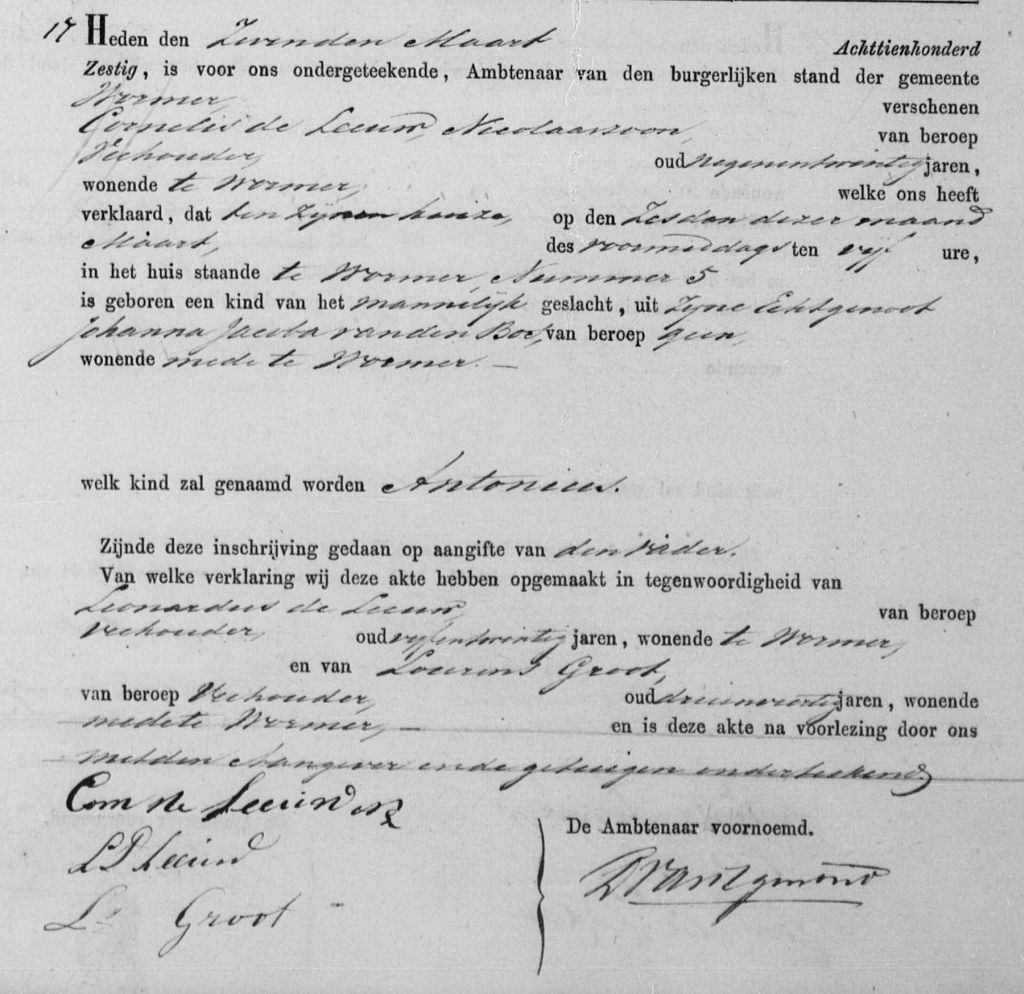 17 Heden den Zevenden Maart Achttienhonderd
Zestig, is voor ons ondergeteekende, Ambtenaar van den burgerlijken stand der gemeente
Wormer, verschenen
Cornelis de Leeuw, Nicolaaszoon, van beroep
Veehouder, oud Negenentwintig jaren,
wonende te Wormer, welke ons heeft
verklaard, dat ten zijnen huize, op den Zesden dezer maand
Maart, des voormiddags ten vijf ure,
in het huis staande te Wormer, Nummer 5
is geboren een kind van het mannelijk geslacht, uit zijne Echtgenoot
Johanna Jacoba van den Bos, van beroep geen,
wonende mede te Wormer. —
welk kind zal genaamd worden Antonius.
Zijnde deze inschrijving gedaan op aangifte van den vader.
Van welke verklaring wij deze akte hebben opgemaakt in tegenwoordigheid van
Leonardus de Leeuw, van beroep
Veehouder, oud vijfentwintig jaren, wonende te Wormer,
en van Lourens Groot,
van beroep Veehouder, oud drieentwintig jaren, wonende
mede te Wormer, — en is deze akte na voorlezing door ons
met den Aangever en de getuigen onderteekend
Corn de Leeuw Nz
L D Leeuw
De Ambtenaar voornoemd.
Ls Groot